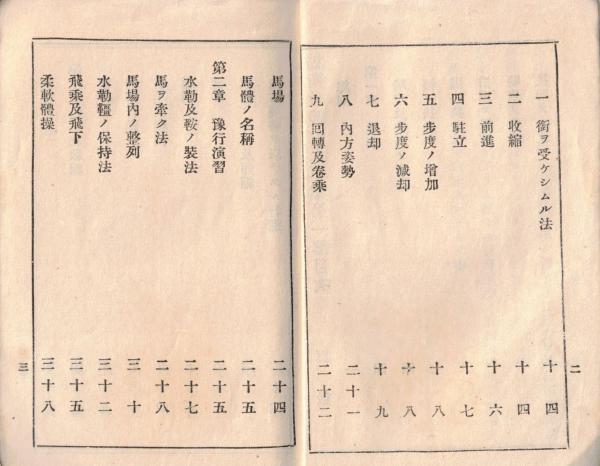 一 銜ヲ受ケシムル法 十四
二 收縮 十四
三 前進 十六
四 駐立 十七
五 步度ノ增加 十八
六 步度ノ減却 十八
七 退却 十九
八 內方姿勢 二十一
九 回轉及卷乘 二十二
二
馬場 二十四
馬體ノ名稱 二十五
第二章 豫行演習 二十五
水勒及鞍ノ裝法 二十七
馬ヲ牽ク法 二十八
馬場內ノ整列 三十
水勒韁ノ保持法 三十二
飛乘及飛下 三十五
柔軟體操 三十八
三